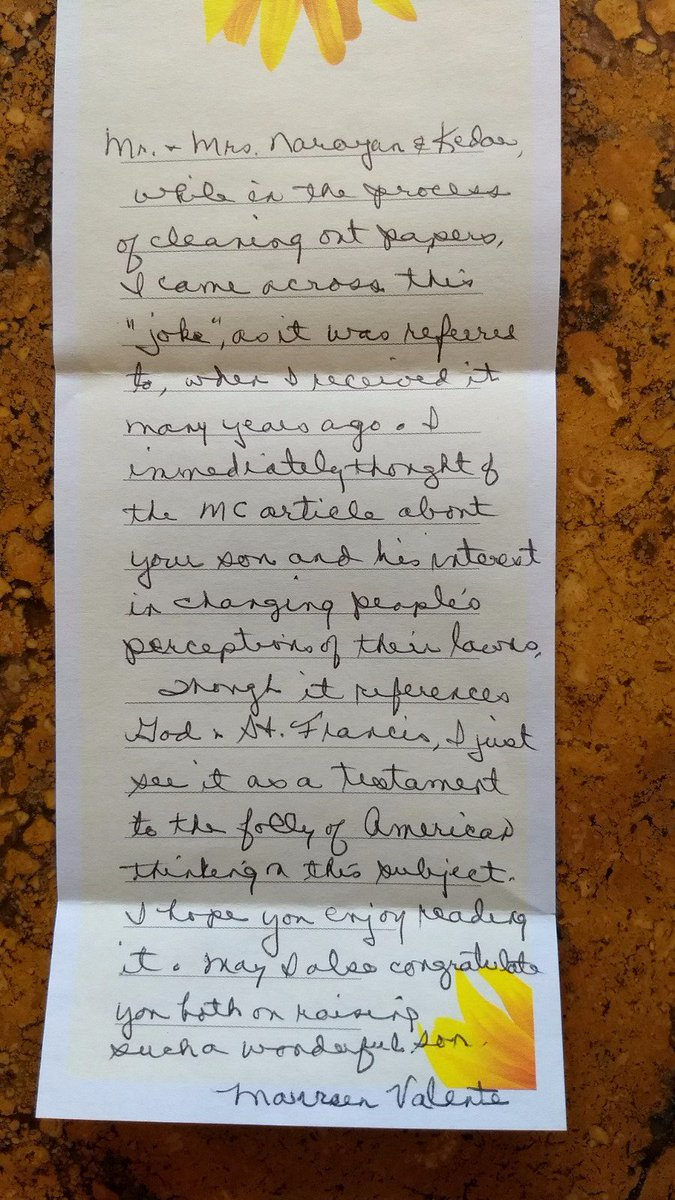 Mr. + Mrs. Narayan & Kedar,
while in the process
of cleaning out papers,
I came across this
"joke", as it was referred
to, when I received it
many years ago. I
immediately thought of
the MC article about
your son and his interest
in changing people's
perceptions of their lawns.
Though it references
God + St. Francis, I just
see it as a testament
to the folly of American
thinking on this subject.
I hope you enjoy reading
it. May I also congratulate
you both on raising
such a wonderful son.
Maureen Valente